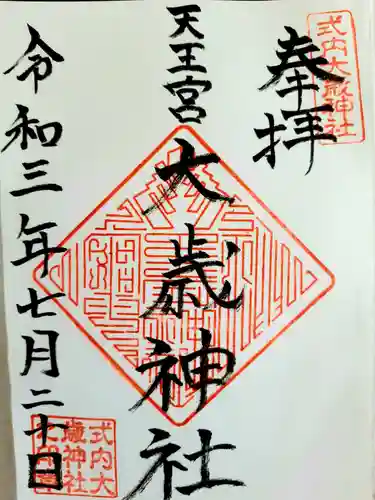 式内大歳神社
奉拝
天王宮
大歳神社
令和三年七月二十日
式内大
歳神社